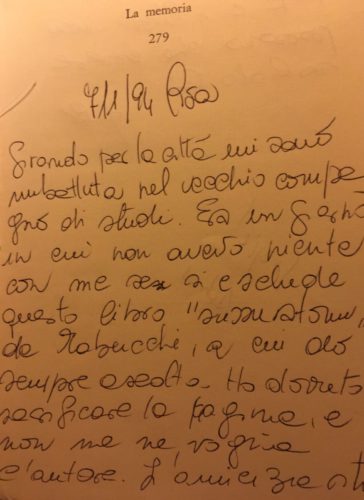 La memoria
279
7/1/94 Pisa
Girando per la città mi sono
imbattuta nel vecchio compa
gno di studi. Era un giorno
in cui non avevo niente
con me se si esclude
questo libro "sussuratomi
da Tabucchi, a cui do
sempre ascolto. Ho dovuto
sacrificare la pagina, e
non me ne voglia
l'autore. L'amicizia